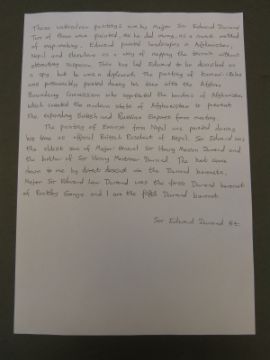 These watercolour paintings are by Major Sir Edward Durand.
Two of them were painted, as he did many, as a
of map-making. Edward painted landscapes in Afghanistan,
Nepal and elsewhere as a way of mapping the terrain without
attracting suspicion. This has led Edward to be described as
a spy, but he was a diplomat. The painting of
was presumably painted during his time with the Afghan
Boundary Commission who negotiated the borders of Afghanistan
which created the modern state of Afghanistan to prevent
the expanding British and Russian Empires from meeting.
The painting of Everest from Nepal was painted during
his time as official British Resident of Nepal. Sir Edward was
the eldest son of Major General Sir Henry Marion Durand and
the brother of Sir Henry Mortimer Durand. The
down to me by direct descent via the Durand baronets.
Major Sir Edward Law Durand was the first Durand baronet
of and I am the fifth Durand baronet.
Sir Edward Durand Bt.